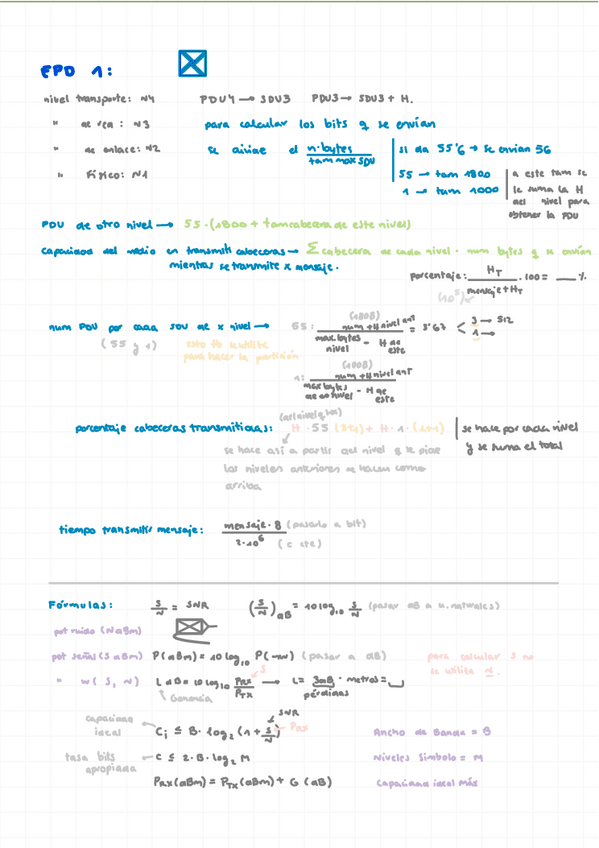 EPD 1:
nivel transporte: N4 PDU4 → SDU3 PDU3 → SDU3 + H.
" de red: N3 para calcular los bits q se envían
" de enlace: N2 se divide el n·bytes / tam max SDU si da 55'6 → se envían 56
" Físico: N1 55 → tam 1800
1 → tam 1000
a este tam se
le suma la H
del nivel para
obtener la PDU
PDU de otro nivel → 55·(1800 + tam cabecera de este nivel)
capacidad del medio en transmitir cabeceras → Σ cabecera de cada nivel · num bytes q se envían
mientras se transmite x mensaje.
porcentaje: HT / mensaje + HT · 100 = __ %
(10³)
num PDU por cada SDU de x nivel → 55: (1808) num + H nivel ant / max bytes nivel - H de este = 3'67 < 3 → 512
1 →
(55 y 1) esto no se utiliza
para hacer la partición
1: (1008) num + H nivel ant / max bytes de ese nivel - H de este
(del nivel q has)
porcentaje cabeceras transmitidas: H · 55 (3+1) + H · 1 · (2+1) se hace por cada nivel
y se suma el total
se hace así a partir del nivel q se pide
los niveles anteriores se hacen como
arriba
tiempo transmitir mensaje: mensaje · 8 / 2·10⁶ (pasarlo a bit)
(c cte)
Fórmulas: S/N = SNR (S/N)dB = 10 log10 S/N (pasar dB a u. naturales)
pot ruido (NdBm)
pot señal (S dBm) P(dBm) = 10 log10 P(mW) (pasar a dB) para calcular S no
se utiliza N.
" W (S, N) L dB = 10 log10 PRX / PTX → L = 3dB · metros =
S
Ganancia pérdidas
SNR
capacidad
ideal Ci ≤ B · log2 (1 + S/N) PRX Ancho de Banda = B
tasa bits
apropiada C ≤ 2 · B · log2 M Niveles Símbolo = M
PRX (dBm) = PTX (dBm) + G (dB) Capacidad ideal máx